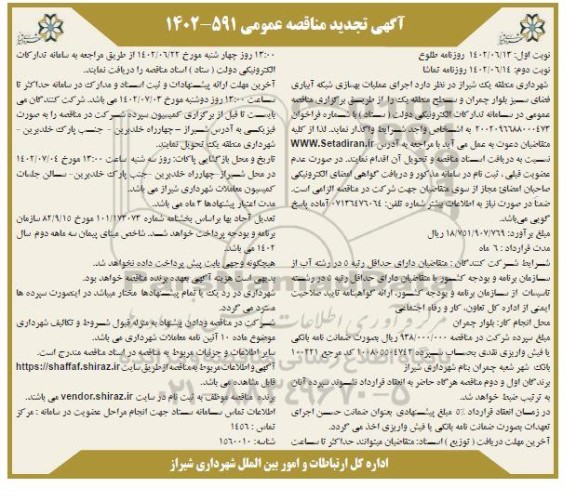 آگهی تجدید مناقصه عمومی ۵۹۱-۱۴۰۲
نوبت اول: ۱۴۰۲/۰۶/۱۳ روزنامه طلوع
نوبت دوم: ۱۴۰۲/۰۶/۱۴ روزنامه تماشا
شهرداری منطقه یک شیراز در نظر دارد اجرای عملیات بهسازی شبکه آبیاری
فضای سبز بلوار چمران و سطح منطقه یک را از طریق برگزاری مناقصه
عمومی در سامانه تدارکات الکترونیکی دولت (ستاد) با شماره فراخوان
۲۰۰۲۰۹۶۸۸۰۰۰۴۷۳ به اشخاص واجد شرایط واگذار نماید. لذا از کلیه
متقاضیان دعوت به عمل می آید با مراجعه به آدرس WWW.Setadiran.ir
نسبت به دریافت اسناد مناقصه و تحویل آن اقدام نمایند. در صورت عدم
عضویت قبلی، ثبت نام در سامانه مذکور و دریافت گواهی امضای الکترونیکی
صاحبان امضائ مجاز از سوی متقاضیان جهت شرکت در مناقصه الزامی است.
ضمنا در صورت نیاز به اطلاعات بیشتر شماره تلفن: ۰۷۱۳۶۴۷۶۰۶۴ آماده پاسخ
گویی می‌باشد.
مبلغ برآورد: ۱۸/۷۵۱/۹۰۷/۷۶۹ ریال
مدت قرارداد: ۶ ماه
شرایط شرکت کنندگان: متقاضیان دارای حداقل رتبه ۵ در رشته آب از
سازمان برنامه و بودجه کشور یا متقاضیان دارای حداقل رتبه ۵ در رشته
تاسیسات از سازمان برنامه و بودجه کشور، ارائه گواهینامه تایید صلاحیت
ایمنی از اداره کل تعاون، کار و رفاه اجتماعی
محل انجام کار: بلوار چمران
مبلغ سپرده شرکت در مناقصه ۹۳۸/۰۰۰/۰۰۰ ریال بصورت ضمانت نامه بانکی
یا فیش واریزی نقدی بحساب سپرده ۱۰۰۸۰۵۵۰۴۷۴۲ کد مرجع ۱۰۰۲۲۱
بانک شهر شعبه چمران بنام شهرداری شیراز
برندگان اول و دوم مناقصه هرگاه حاضر به انعقاد قرارداد نشوند سپرده آنان
به ترتیب ضبط خواهد شد.
در زمان انعقاد قرارداد ۵٪ مبلغ پیشنهادی بعنوان ضمانت حسن اجرای
تعهدات بصورت ضمانت نامه بانکی یا فیش واریزی اخذ می گردد.
آخرین مهلت دریافت (توزیع) اسناد: متقاضیان میتوانند حداکثر تا ساعت
۱۳:۰۰ روز چهار شنبه مورخ ۱۴۰۲/۰۶/۲۲ از طریق مراجعه به سامانه تدارکات
الکترونیکی دولت (ستاد) اسناد مناقصه را دریافت نمایند.
آخرین مهلت ارائه پیشنهادات و ثبت اسناد و مدارک در سامانه حداکثر تا
ساعت ۱۳:۰۰ روز دوشنبه مورخ ۱۴۰۲/۰۷/۰۳ می باشد. شرکت کنندگان می
بایست تا قبل از برگزاری کمیسیون سپرده شرکت در مناقصه را به صورت
فیزیکی به آدرس شیراز – چهارراه خلدبرین - جنب پارک خلدبرین -
شهرداری منطقه یک تحویل نمایند.
تاریخ و محل بازگشایی پاکات: روز سه شنبه ساعت ۱۳:۰۰ مورخ ۱۴۰۲/۰۷/۰۴
در محل شیراز- چهارراه خلدبرین -جنب پارک خلدبرین- سالن جلسات
کمیسیون معاملات شهرداری شیراز می باشد.
مدت اعتبار پیشنهادها ۳ ماه می باشد.
تعدیل آحاد بها براساس بخشنامه شماره ۱۰۱/۱۷۳۰۷۳ مورخ ۸۲/۹/۱۵ سازمان
برنامه و بودجه پرداخت خواهد شد. شاخص مبنای پیمان سه ماهه دوم سال
۱۴۰۲ می باشد.
هیچگونه وجهی بابت پیش پرداخت داده نخواهد شد.
بدیهی است هزینه آگهی بعهده برنده مناقصه خواهد بود.
شهرداری در رد یک یا تمام پیشنهادها مختار میباشد در اینصورت سپرده ها
مسترد می گردد.
شرکت در مناقصه و دادن پیشنهاد به منزله قبول شروط و تکالیف شهرداری
موضوع ماده ۱۰ آئین نامه معاملات شهرداری می باشد.
سایر اطلاعات و جزئیات مربوط به مناقصه در اسناد مناقصه مندرج است.
آگهی و اطلاعات مربوط به مناقصه از طریق سایت https://shaffaf.shiraz.ir
قابل مشاهده می باشد.
برنده مناقصه موظف به ثبت نام در سایت vendor.shiraz.ir می باشد.
اطلاعات تماس سامانه ستاد جهت انجام مراحل عضویت در سامانه: مرکز
تماس: ۱۴۵۶
شناسه: ۱۵۶۰۰۱۰
اداره کل ارتباطات و امور بین الملل شهرداری شیراز
۰۲۱-۸۸۳۴۹۶۷۰-۵